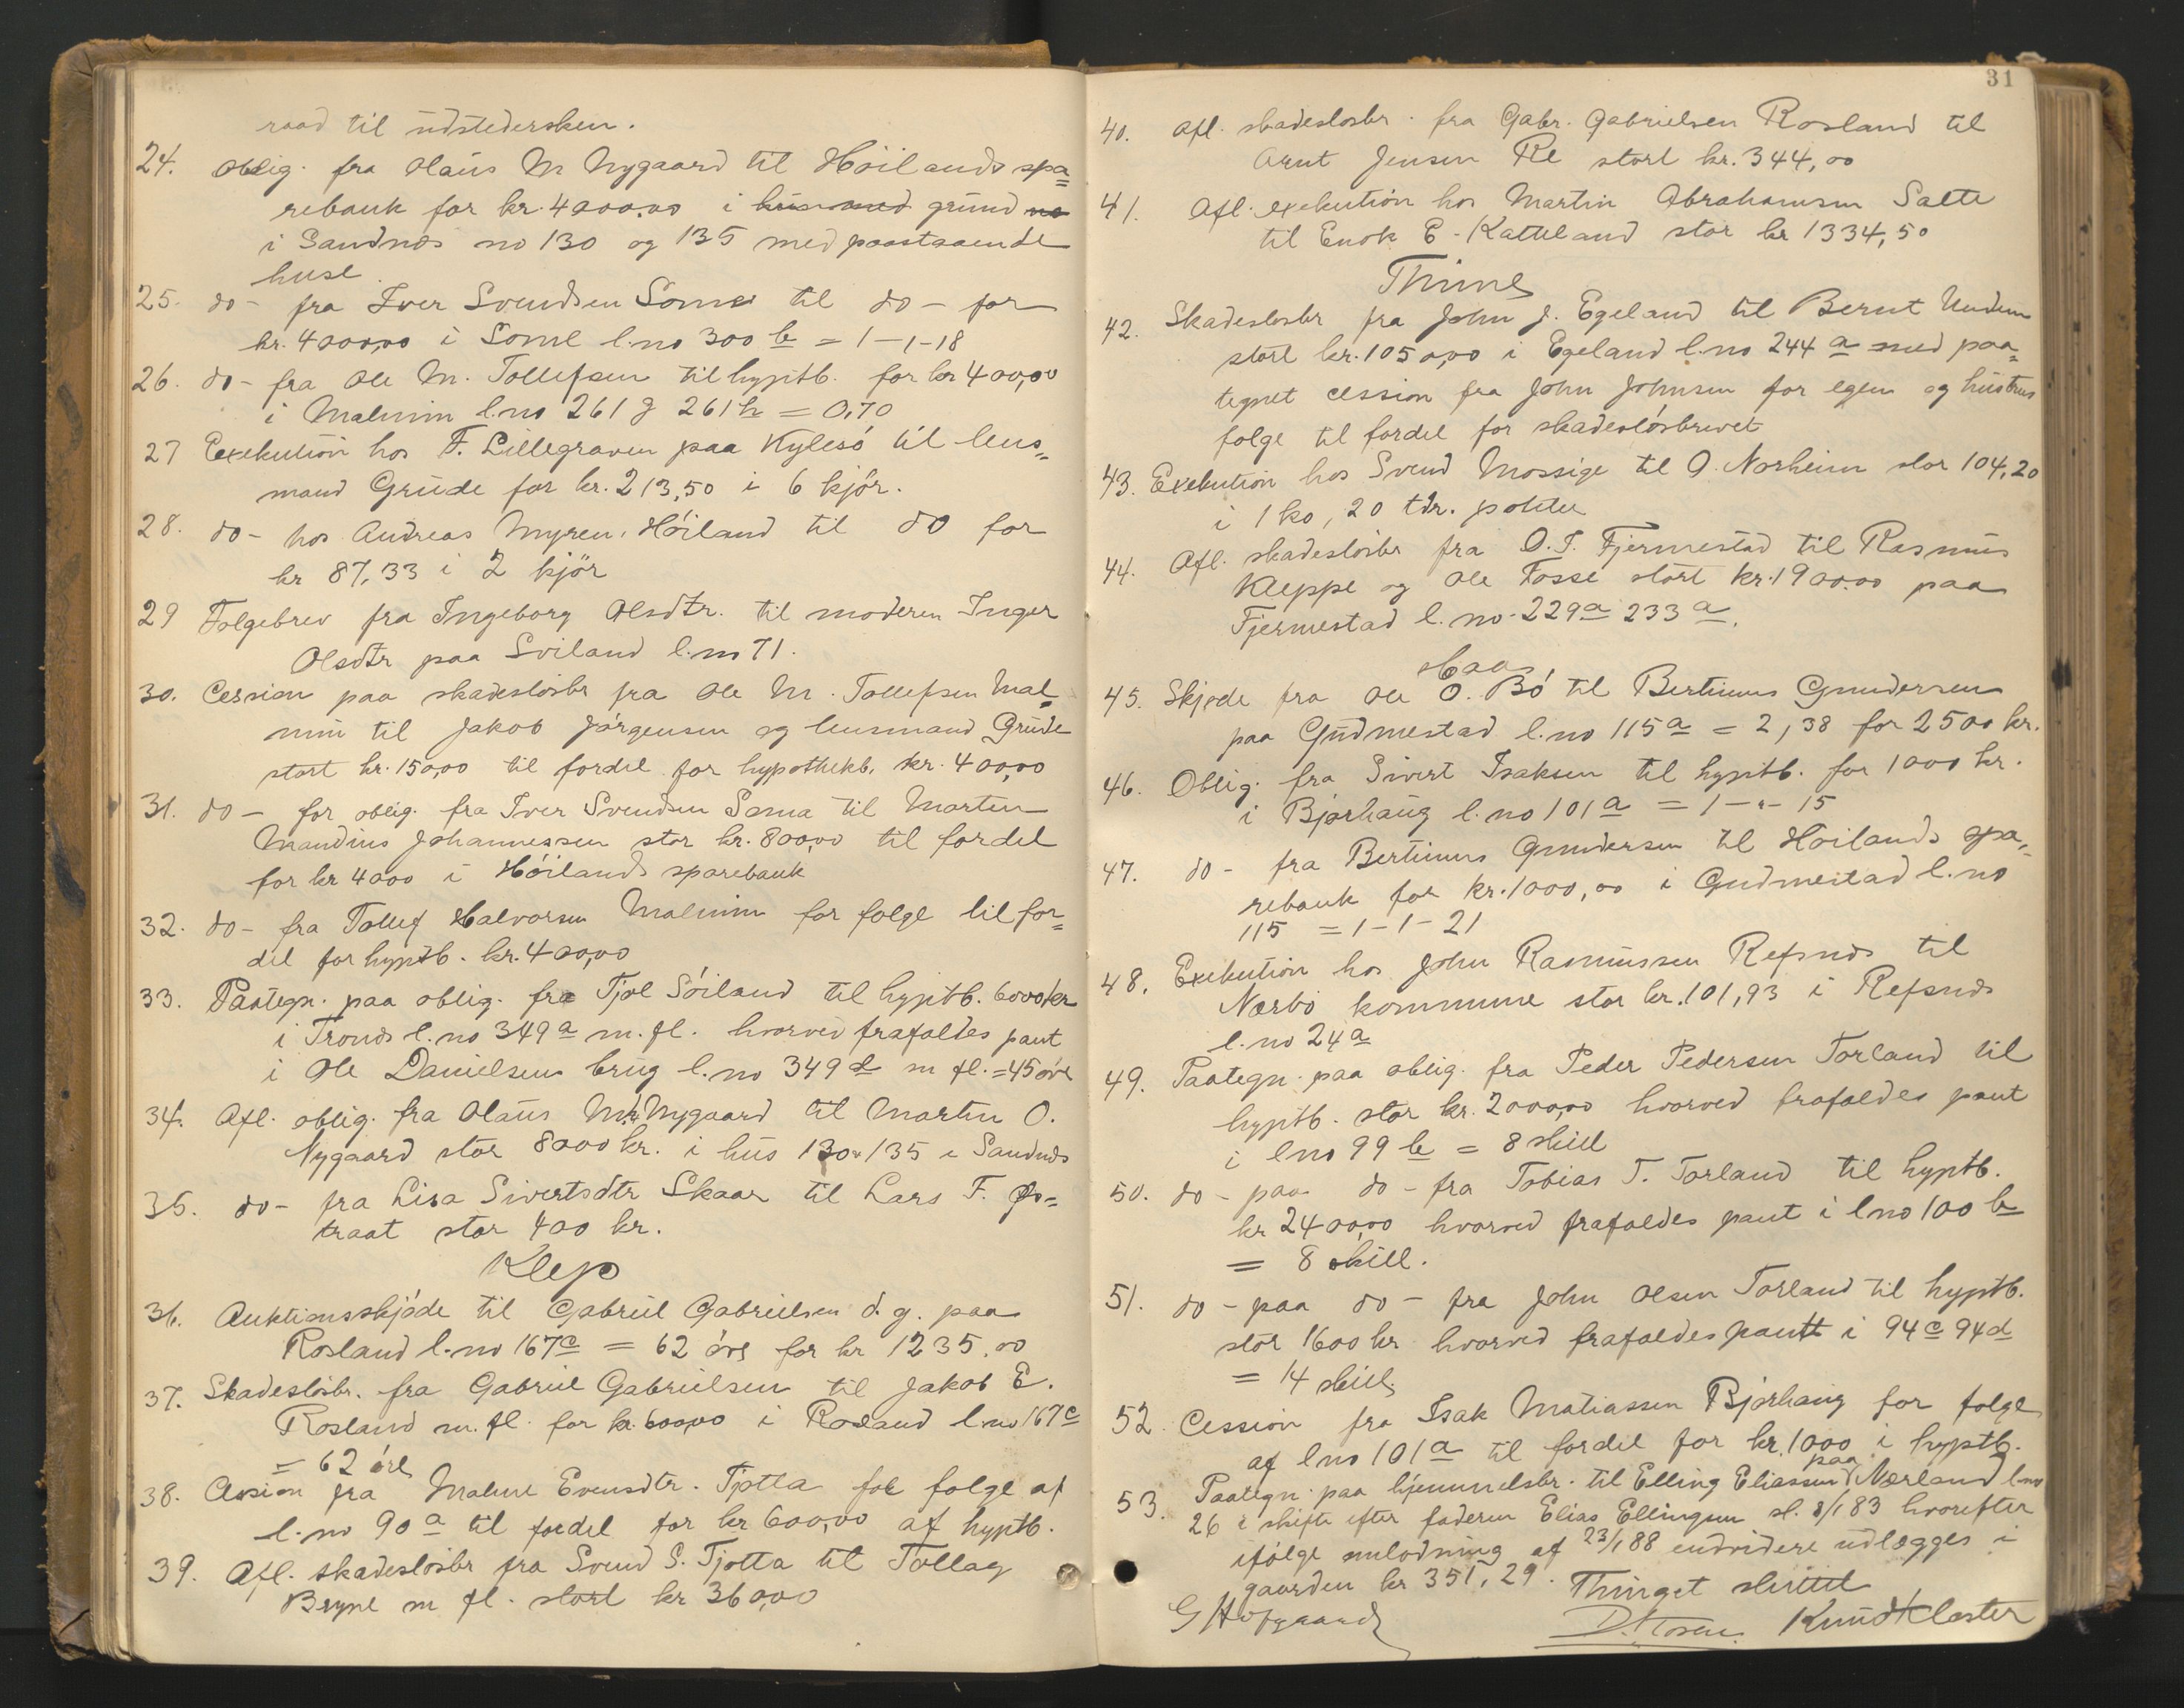 raad til udstedersken.
24. Oblig. fra Olaus M Nygaard til Höilands spa=
rebank for kr. 4000.00 i hus med grund no
i Sandnæs no 130 og 135 med paastaaende
huse
25. do- fra Iver Svendsen Some til do- for
kr. 4000,00 i Some l.no 300 b = 1-1-18
26. do- fra Ole M. Tollefsen til hyptb. for kr 400,00
i Malmim l.no 261 g 261 h = 0,70
27 Exekution hos F. Lillegraven paa Kylesö til lens=
mand Grude for kr. 213,50 i 6 kjör.
28. do- hos Andreas Myren, Höiland til do for
kr 87,33 i 2 kjör
29 Folgebrev fra Ingeborg Olsdtr. til moderen Inger
Olsdtr paa Sviland l.no 71.
30. Cession paa skadeslösbr fra Ole M. Tollefsen Mal=
mim til Jakob Jörgensen og lensmand Grude
stort kr. 150,00 til fordel for hypothekb. kr. 400,00
31. do- for oblig. fra Iver Svendsen Soma til Marten
Mandius Johannessen stor kr. 800,00 til fordel
for kr 4000 i Höilands sparebank
32. do- fra Tollef Halvorsen Malmim for folge til for=
del for hyptb. kr. 400,00
33. Paategn. paa oblig. fra Tjöl Söiland til hyptb. 6000 kr
i Tronds l.no 349 a m.fl. hvorved frafaldes pant
i Ole Danielsens brug l.no 349 d m fl. = 45 öre
34. Afl. oblig. fra Olaus M. Nygaard til Martin O.
Nygaard stor 8000 kr. i hus 130 & 135 i Sandnæs
35. do- fra Lisa Sivertsdtr Skaar til Lars F. Øs=
traat stor 400 kr.
Klep
36. Auktionsskjöde til Gabriel Gabrielsen d.y. paa
Rosland l.no 167 c = 62 öre for kr 1235.00
37. Skadeslösbr. fra Gabriel Gabrielsen til Jakob E.
Rosland m.fl. for kr. 600,00 i Rosland l.no 167 c
= 62 öre
38. Cession fra Malene Evensdtr. Tjotta for folge af
l.no 90 a til fordel for kr 600,00 af hyptb.
39. Afl. skadeslösbr fra Svend S. Tjotta til Tollag
Bryne m fl. stort kr 360,00
31
40. Afl. skadeslosbr. fra Gabr. Gabrielsen Rosland til
Arnt Jensen Re stort kr. 344,00
41. Afl. exekution hos Martin Abrahamsen Salte
til Enok E. Katteland stor kr 1334,50
Thime
42. Skadeslosbr fra John J. Egeland til Bernt Undem
stort kr. 1050,00 i Egeland l.no 244 a med paa=
tegnet cession fra John Johnsen for egen og hustrus
folge til fordel for skadeslösbrevet
43. Exekution hos Svend Mossige til O. Norheim stor 104,20
i 1 ko, 20 tdr. poteter
44. Afl. skadeslösbr fra O. T. Fjermestad til Rasmus
Kleppe og Ole Fosse stort kr. 1900.00 paa
Fjermestad l. no. 229 a 233 a.
Haa
45. Skjøde fra Ole O. Bö til Bertinius Gundersen
paa Gudmestad l.no 115 a = 2,38 for 2500 kr.
46. Oblig. fra Sivert Isaksen til hyptb. for 1000 kr.
i Bjorhaug l.no 101 a = 1-"-15
47. do- fra Bertinius Gundersen til Höilands spa=
rebank for kr. 1000,00 i Gudmestad l.no
115 = 1-1-21
48. Exekution hos John Rasmussen Refsnæs til
Nærbö kommune stor kr. 101,93 i Refsnæs
l.no 24 a
49. Paategn. paa oblig. fra Peder Pedersen Torland til
hyptb. stor kr. 2000,00 hvorved frafaldes pant
i l no 99 b = 8 skill
50. do- paa do- fra Tobias T. Torland til hyptb.
kr 2400,00 hvorved frafaldes pant i l no 100 b
= 8 skill.
51. do- paa do- fra John Olsen Torland til hyptb.
stor 1600 kr hvorved frafaldes pant i 94 c 94 d
= 14 skill.
52. Cession fra Isak Matiassen Bjorhaug for folge
af l no 101 a til fordel for kr. 1000 i hyptb.
53. Paategn. paa hjemmelsbr. til Elling Eliassen paa Nærland l no
26 i skifte efter faderen Elias Ellingsen sl. 8/1 83 hvorefter
ifölge omlodning af 23/1 88 endvidere udlægges i
gaarden kr 351,29. Thinget sluttet
G Hofgaard D. Tosen. Knud Kloster